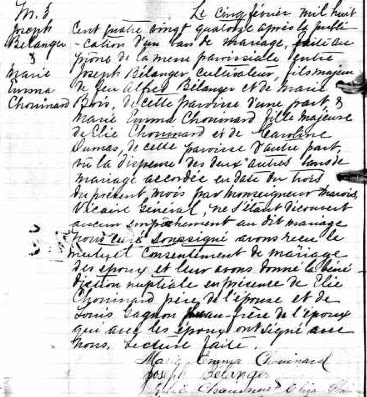 M. 3
Joseph
Bélanger
&
Marie
Emma
Chouinard
Le cinq février mil huit
cent quatre vingt quatorze après la publi-
cation d'un ban de mariage, faite au
prône de la messe paroissiale entre
Joseph Bélanger cultivateur, fils majeur
de feu Alfred Bélanger et de Marie
Bois, de cette paroisse d'une part, &
Marie Emma Chouinard fille majeure
de Elie Chouinard et de Caroline
Dumas, de cette paroisse d'autre part,
vû la dispense des deux autres bans de
mariage accordée en date du trois
du présent mois par monseigneur Marois,
Vicaire Général, ne s'étant découvert
aucun empêchement au dit mariage
nous curé soussigné avons reçu le
mutuel consentement de mariage
des époux et leur avons donné la béné-
diction nuptiale en présence de Elie
Chouinard père de l'épouse et de
Louis Gagnon beau-frère de l'époux
qui avec les époux ont signé avec
nous. Lecture faite.
Marie Emma Chouinard
Joseph Bélanger
Elie Chouinard